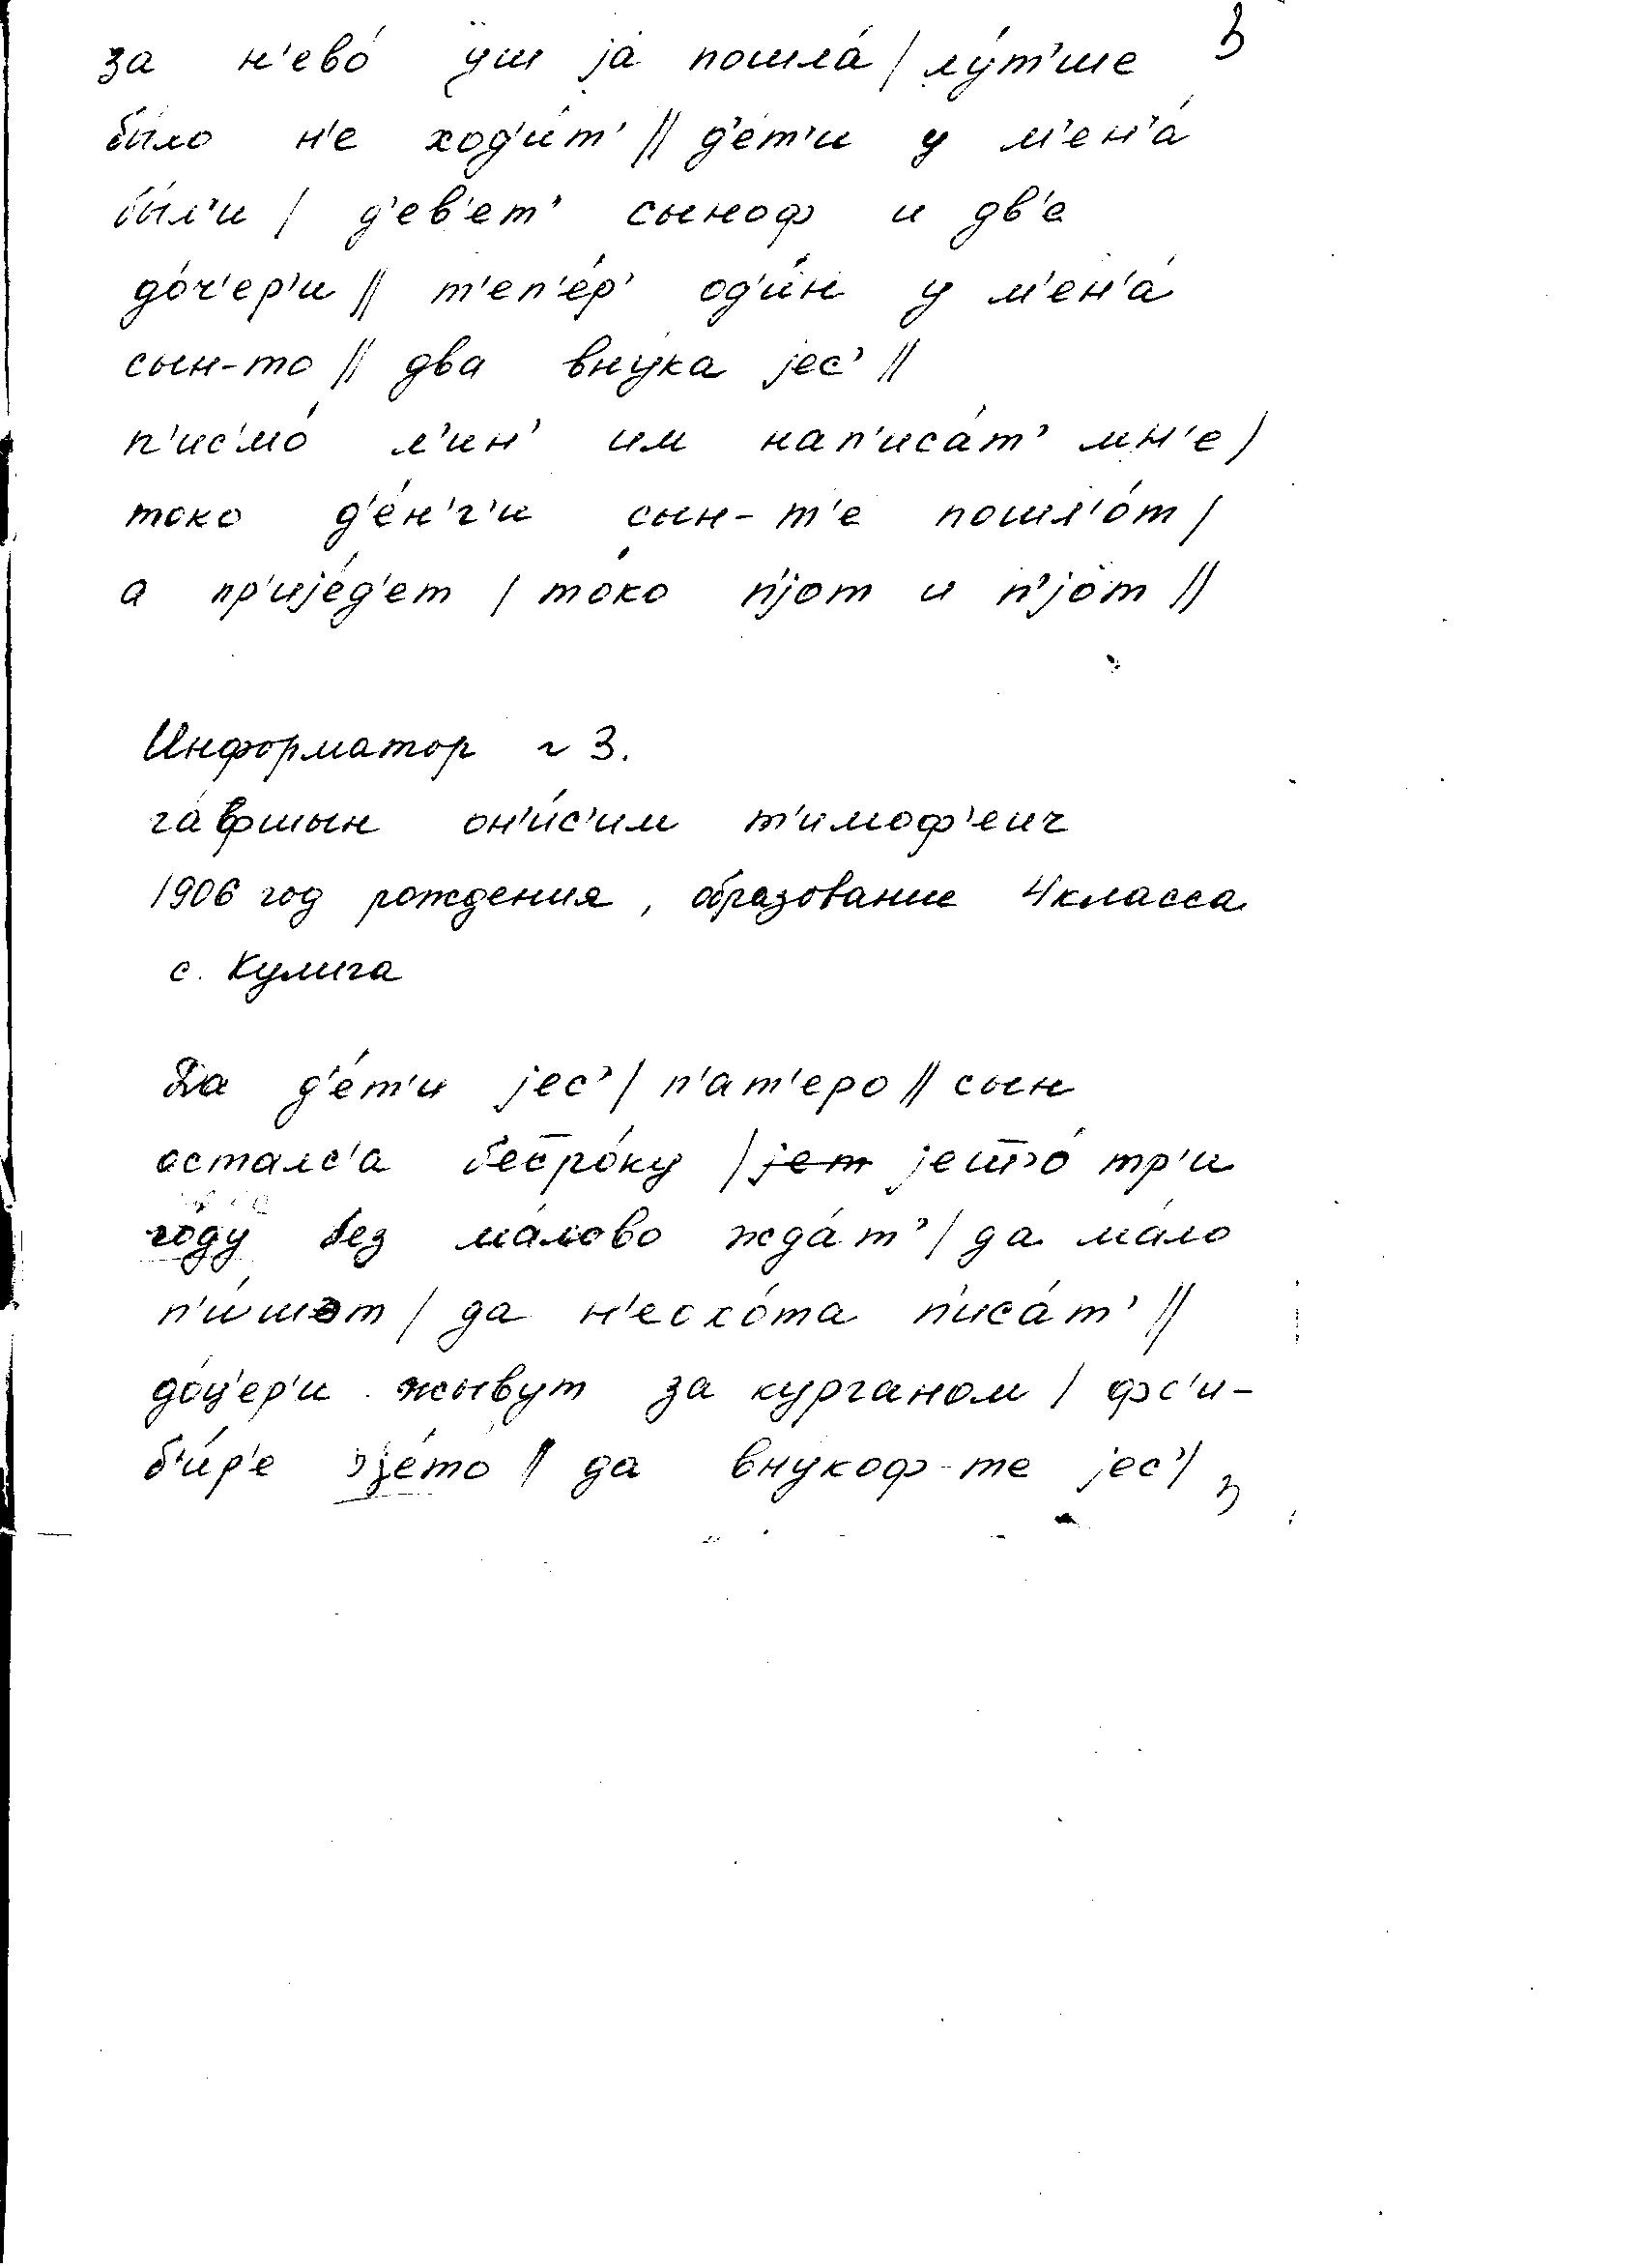 за н'ево́ уш jа пошла́ / лу́т'ше 3
бы́ло н'е ход'и́т' // д'е́т'и у м'ен'а́
бы́л'и / д'ев'ет' сыноф и дв'е
до́ч'ер'и // т'еп'е́р' од'и́н у м'ен'а́
сын-то // два вну́ка jес' //
п'ис'мо́ л'ин' им нап'иса́т' мн'е /
токо д'е́н'г'и сын-т'е пошл'о́т /
а пр'иjе́д'ет / то́ко п'jот и п'jо́т //
Информатор № 3.
га́вршын он'и́с'им т'имоф'еич
1906 год рождения, образование 4 класса
с. Кулига
Да д'е́т'и jес' / п'ат'еро // сын
осталс'а бес̅ро́ку / jет jешт̅о́ тр'и
го́ду без ма́лово жда́т' / да ма́ло
п'и́шэт / да н'еохо́та п'иса́т' //
до́ц'ер'и жывут за курганом / фс'и-
б'и́р'е эjе́то // да внукоф-те jес' / 3